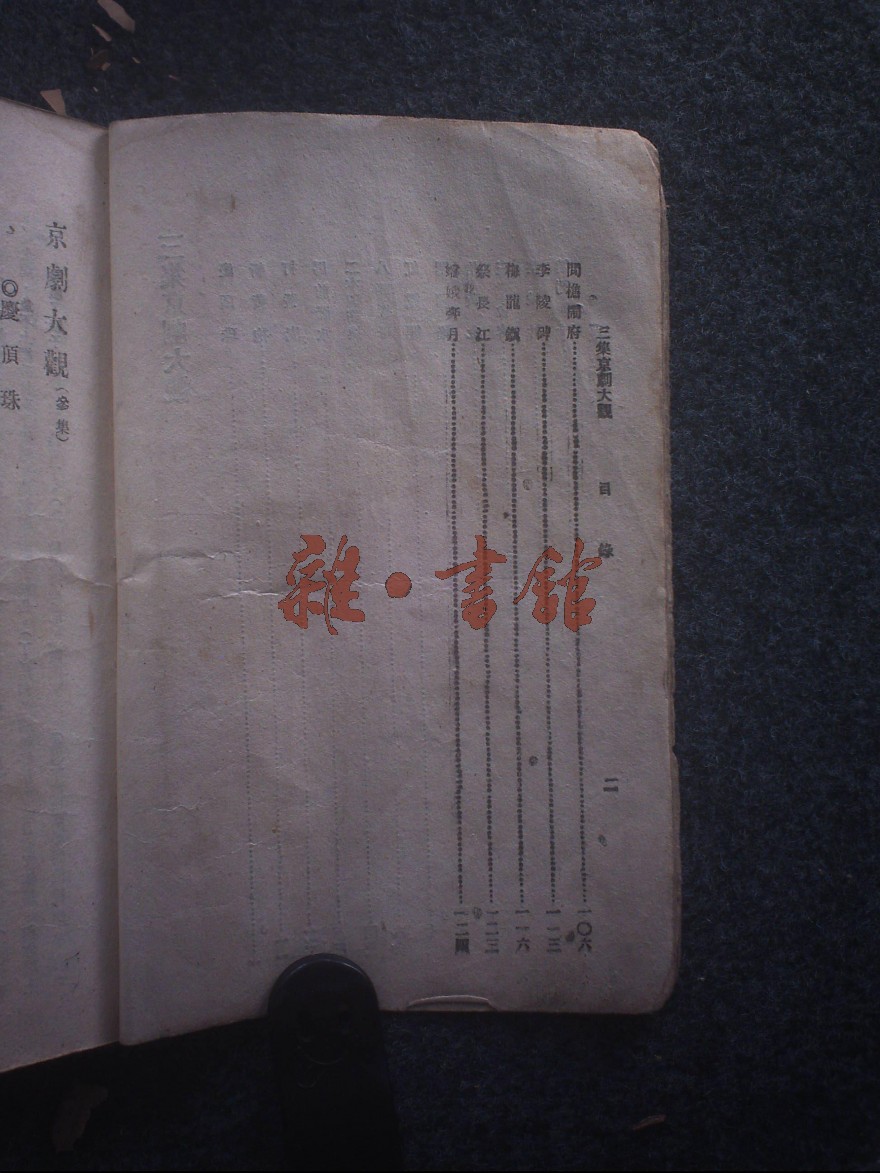 三集京劇大觀 目錄 二
問樵鬧府 一〇六
李陵碑 一一三
梅龍鎮 一一六
祭長江 一二三
嬙娥奔月 一二四
京劇大觀(叁集)
◎慶頂珠
雜·書館